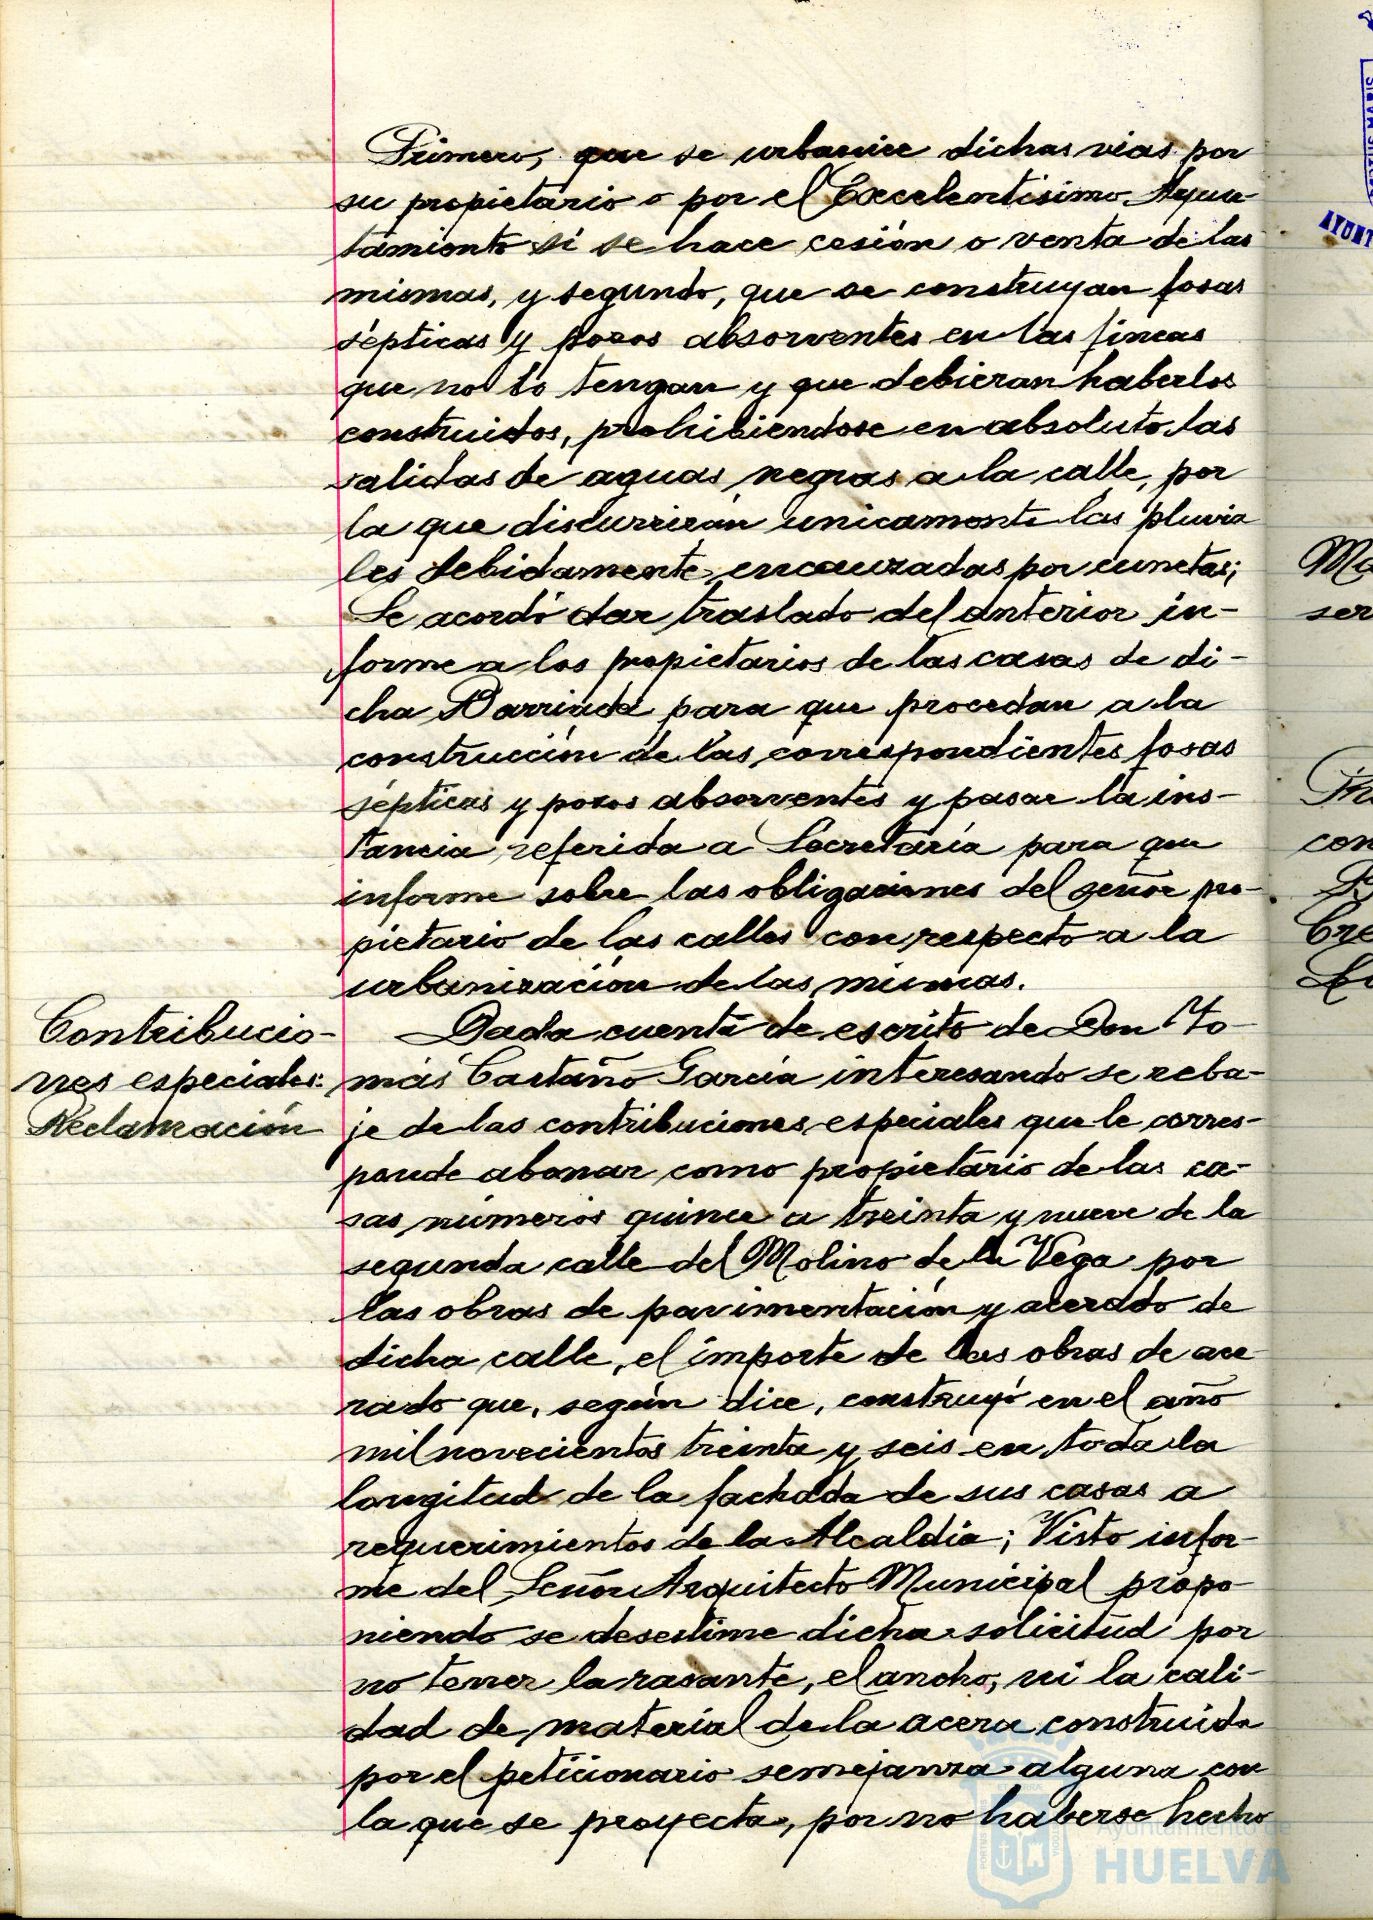 Primero, que se urbanice dichas vias por
su propietario o por el Excelentisimo Ayun-
tamiento si se hace cesión o venta de las
mismas, y segundo, que se construyan fosas
sépticas y pozos absorventes en las fincas
que no lo tengan y que debieran haberlos
construidos, prohibiendose en absoluto las
salidas de aguas negras a la calle, por
la que discurrirán unicamente las pluvia
les debidamente encauzadas por cunetas;
Se acordó dar traslado del anterior in-
forme a los propietarios de las casas de di-
cha Barriada para que procedan a la
construcción de las correspondientes fosas
sépticas y pozos absorventes y pasar la ins-
tancia referida a Secretaría para que
informe sobre las obligaciones del señor pro-
pietario de las calles con respecto a la
urbanización de las mismas.
Contribucio-
nes especiales:
Reclamación
Dada cuenta de escrito de Don To-
más Castaño García interesando se reba-
je de las contribuciones especiales que le corres-
ponde abonar como propietario de las ca-
sas números quince a treinta y nueve de la
segunda calle del Molino de la Vega por
las obras de pavimentación y acerado de
dicha calle, el importe de las obras de ace
rado que, según dice, construyó en el año
mil novecientos treinta y seis en toda la
longitud de la fachada de sus casas a
requerimientos de la Alcaldia; Visto infor-
me del Señor Arquitecto Municipal propo-
niendo se desestime dicha solicitud por
no tener la rasante, el ancho, ni la cali-
dad de material de la acera construida
por el peticionario semejanza alguna con
la que se proyecta, por no haberse hecho
Ayuntamiento de
HUELVA